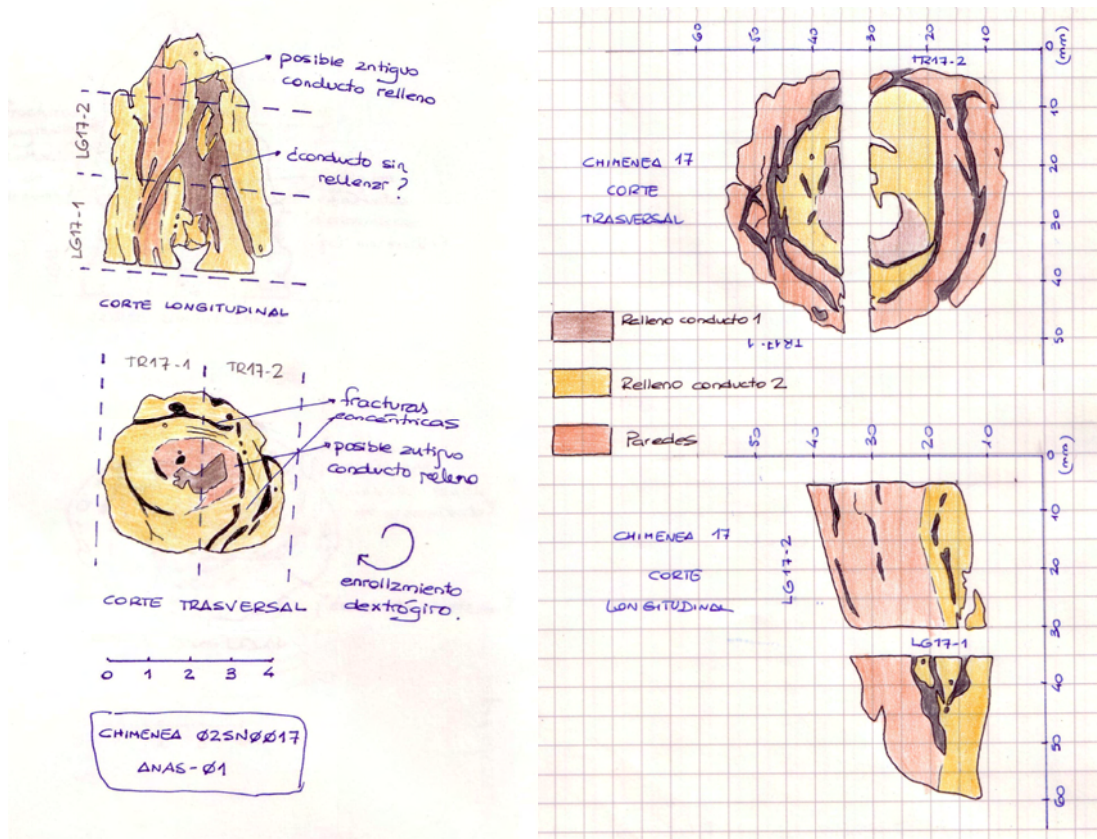 posible antiguo
conducto relleno
¿conducto sin
rellenar?
LG17-2
LG17-1
CORTE LONGITUDINAL
TR17-1 TR17-2
fracturas
concéntricas
posible antiguo
conducto relleno
enrollamiento
dextrógiro.
CORTE TRASVERSAL
0 1 2 3 4
CHIMENEA 02SN0017
ANAS-01
60 50 40 30 20 10 0
(mm)
TR17-2
10
20
30
40
50
CHIMENEA 17
CORTE
TRASVERSAL
TR17-1
Relleno conducto 1
Relleno conducto 2
Paredes
50 40 30 20 10 0
(mm)
10
20
30
40
50
60
CHIMENEA 17
CORTE
LONGITUDINAL
LG17-2
LG17-1